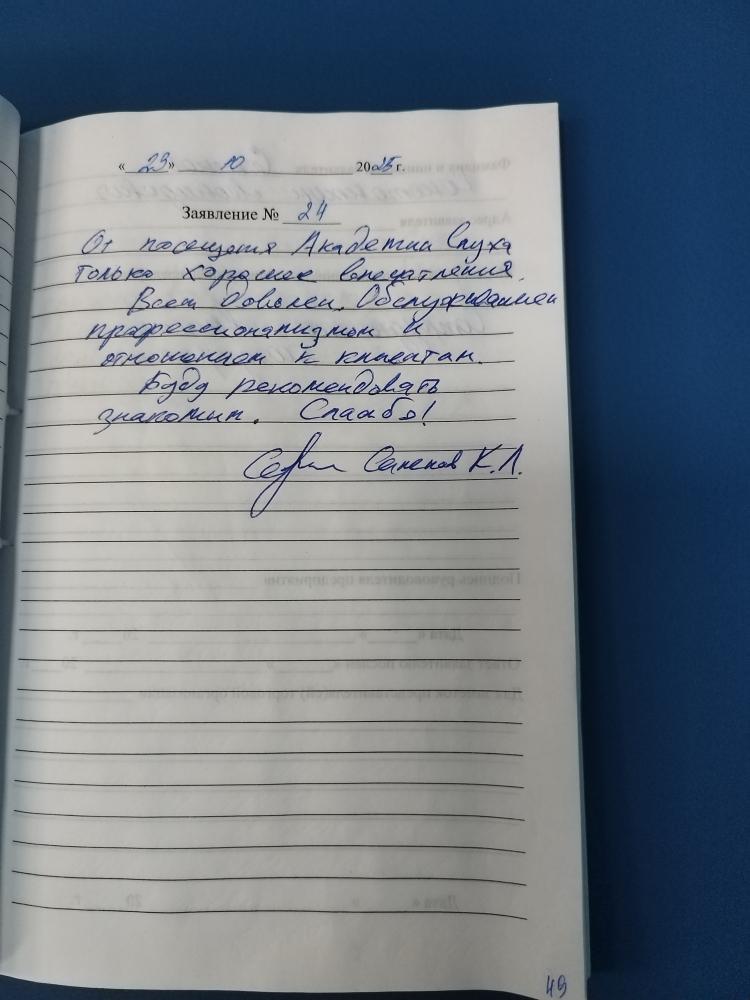 « 23 » 10 2025 г.
Заявление № 24
От посещения Академии Слуха
только хорошее впечатления.
Всем доволен. Обслуживанием
профессионализмом и
отношением к клиентам.
Буду рекомендовать
знакомым. Спасибо!
К. Л.
49